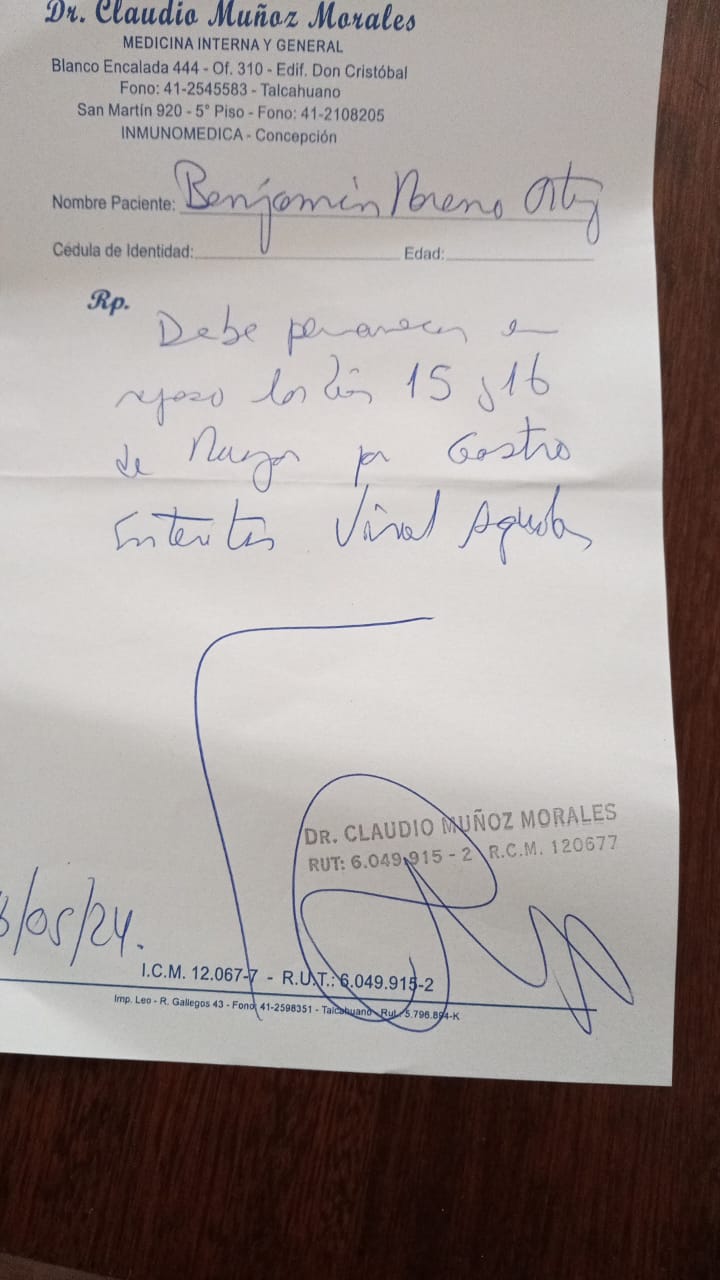 Dr. Claudio Muñoz Morales
MEDICINA INTERNA Y GENERAL
Blanco Encalada 444 - Of. 310 - Edif. Don Cristóbal
Fono: 41-2545583 - Talcahuano
San Martín 920 - 5° Piso - Fono: 41-2108205
INMUNOMEDICA - Concepción
Nombre Paciente: Benjamín Moreno Ortiz
Cédula de Identidad: Edad:
Rp.
Debe permanecer en
reposo los días 15 y 16
de Mayo por Gastro
Enteritis Viral Aguda
DR. CLAUDIO MUÑOZ MORALES
RUT: 6.049.915 - 2 R.C.M. 120677
/05/24.
I.C.M. 12.067-7 - R.U.T.: 6.049.915-2
Imp. Leo - R. Gallegos 43 - Fono: 41-2598351 - Talcahuano - Rut.: 5.796.894-K